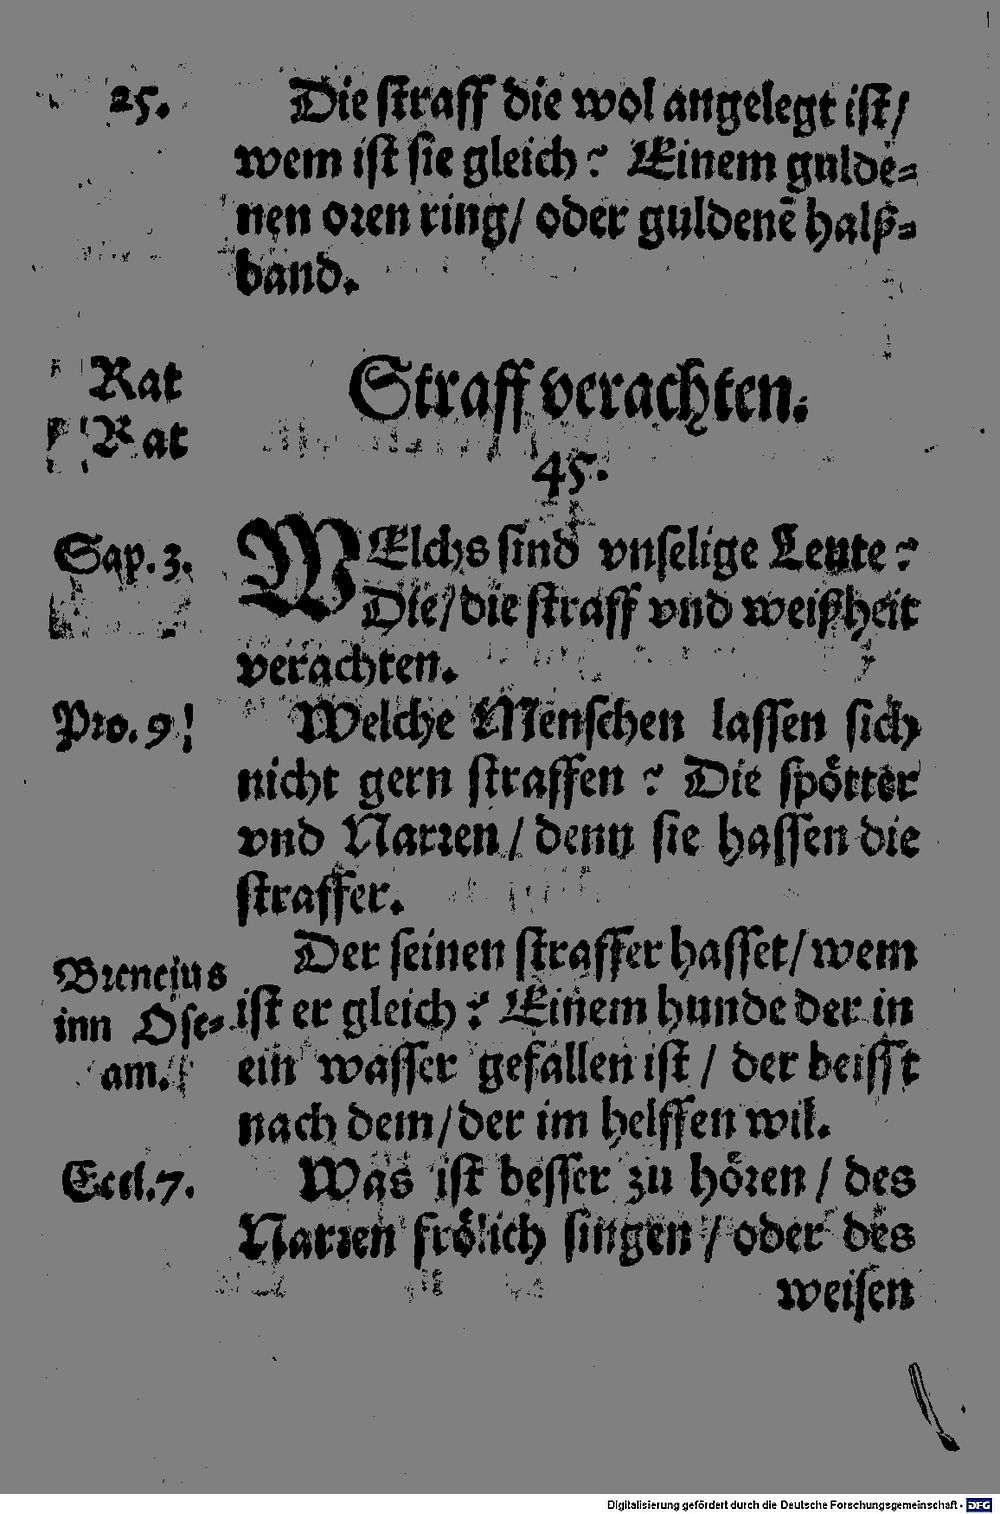 25.
Die ſtraff die wol angelegt iſt/
wem iſt ſie gleich? Einem gulde⸗
nen oꝛen ring/ oder guldenē halß⸗
band.
Rat
Rat
Straff verachten.
45.
Sap. 3.
WElchs ſind vnſelige Leute?
Die/ die ſtraff vnd weißheit
verachten.
Pro. 9
Welche Menſchen laſſen ſich
nicht gern ſtraffen? Die ſpoͤtter
vnd Narꝛen/ denn ſie haſſen die
ſtraffer.
Der ſeinen ſtraffer haſſet/ wem
Brencius
inn Oſe⸗
am.
iſt er gleich? Einem hunde der in
ein waſſer gefallen iſt/ der beiſſt
nach dem/ der im helffen wil.
Eccl. 7.
Was iſt beſſer zu hoͤꝛen/ des
Narꝛen froͤlich ſingen/ oder des
weiſen
Digitalisierung gefördert durch die Deutsche Forschungsgemeinschaft - DFG